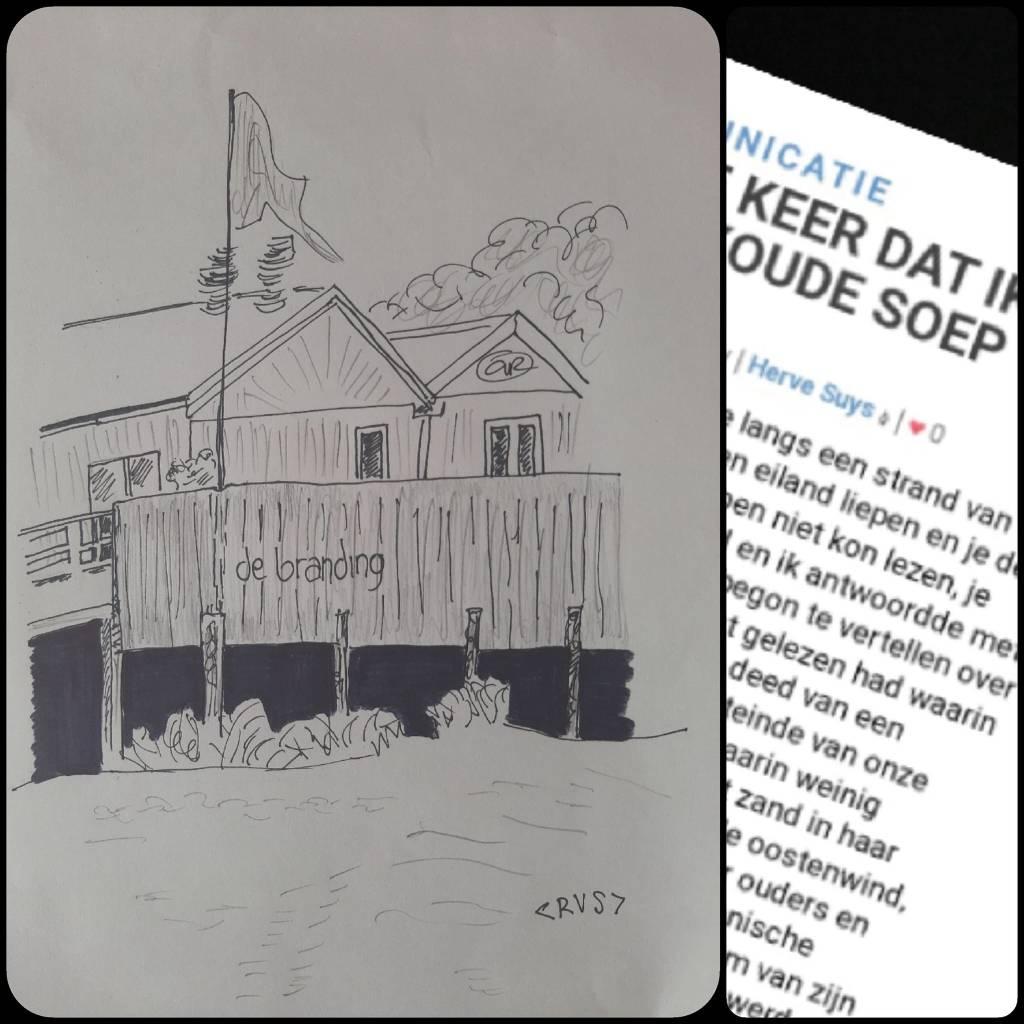 de branding
<RVS>
NICATIE
KEER DAT IK
KOUDE SOEP
| Herve Suys | 0
langs een strand van
en eiland liepen en je de
pen niet kon lezen, je
en ik antwoordde met
begon te vertellen over
t gelezen had waarin
deed van een
teinde van onze
aarin weinig
t zand in haar
e oostenwind,
r ouders en
nische
m van zijn
werd